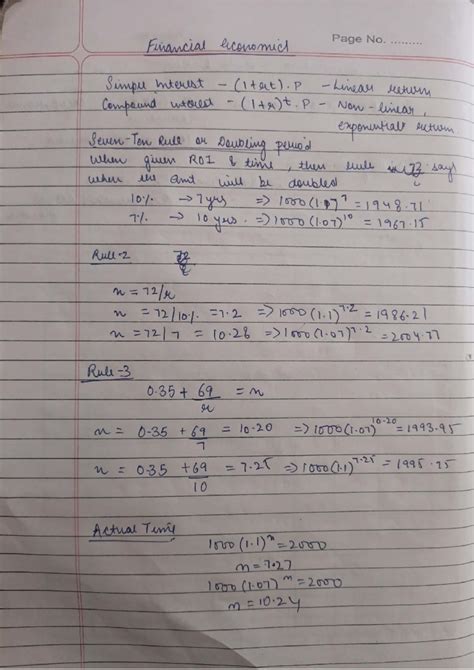 Page No. ..........
Financial Economics
Simple Interest - (1+rt).P - Linear return
Compound interest - (1+r)^t.P - Non-linear,
exponential return
Seven-Ten Rule or Doubling period
When given ROI & time, then rule says
when the amt will be doubled
10% → 7 yrs ⇒ 1000(1.10)^7 = 1948.71
7% → 10 yrs ⇒ 1000(1.07)^10 = 1967.15
Rule-2
n = 72/r
n = 72/10% = 7.2 ⇒ 1000(1.1)^7.2 = 1986.21
n = 72/7 = 10.28 ⇒ 1000(1.07)^7.2 = 2004.77
Rule-3
0.35 + 69/r = n
n = 0.35 + 69/7 = 10.20 ⇒ 1000(1.07)^10.20 = 1993.95
n = 0.35 + 69/10 = 7.25 ⇒ 1000(1.1)^7.25 = 1995.75
Actual Time
1000(1.1)^n = 2000
n = 7.27
1000(1.07)^n = 2000
n = 10.24